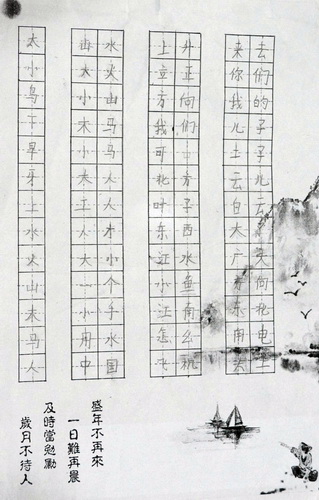 去们的子子儿云头向北电土
来你我儿土云白大广方东用头
升正向们方子西水鱼南么机
上立方我可北叶东江小江怎
水火山马马人人才小个手水国
大小木小木土人大小用中
太小鸟下早牙上水火山木马人
盛年不再來
一日難再晨
及時當勉勵
歲月不待人